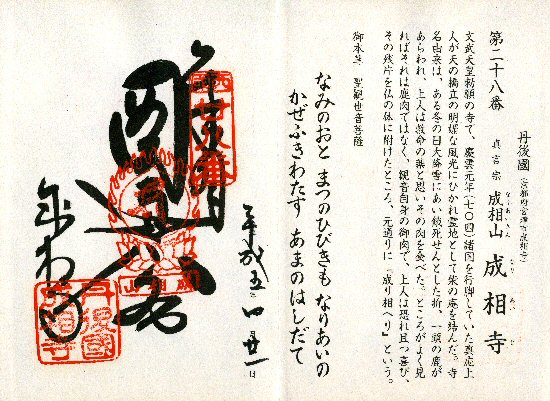 第二十八番
丹後國
真言宗 成相山 成相寺
なりあいさん
文武天皇勅願の寺で、慶雲元年(七〇四)諸国を行脚していた真応上
人が天の橋立の明媚な風光にひかれ霊地として柴の庵を結んだ。寺
名由来は、ある冬の日大降雪にあい餓死せんとした折、一頭の鹿が
あらわれ、上人は救命の薬と思いその肉を食べた。ところがよく見
ればそれは鹿肉ではなく、観音自身の御肉で、上人は恐れ且つ喜び、
その残片を仏の体に附けたところ、元通りに「成り相へり」という。
御本尊 聖観世音菩薩
なみのおと まつのひびきも なりあいの
かぜふきわたす あまのはしだて
平成五 四 廿一
奉拝
成相山
成相寺
丹後國
成相寺